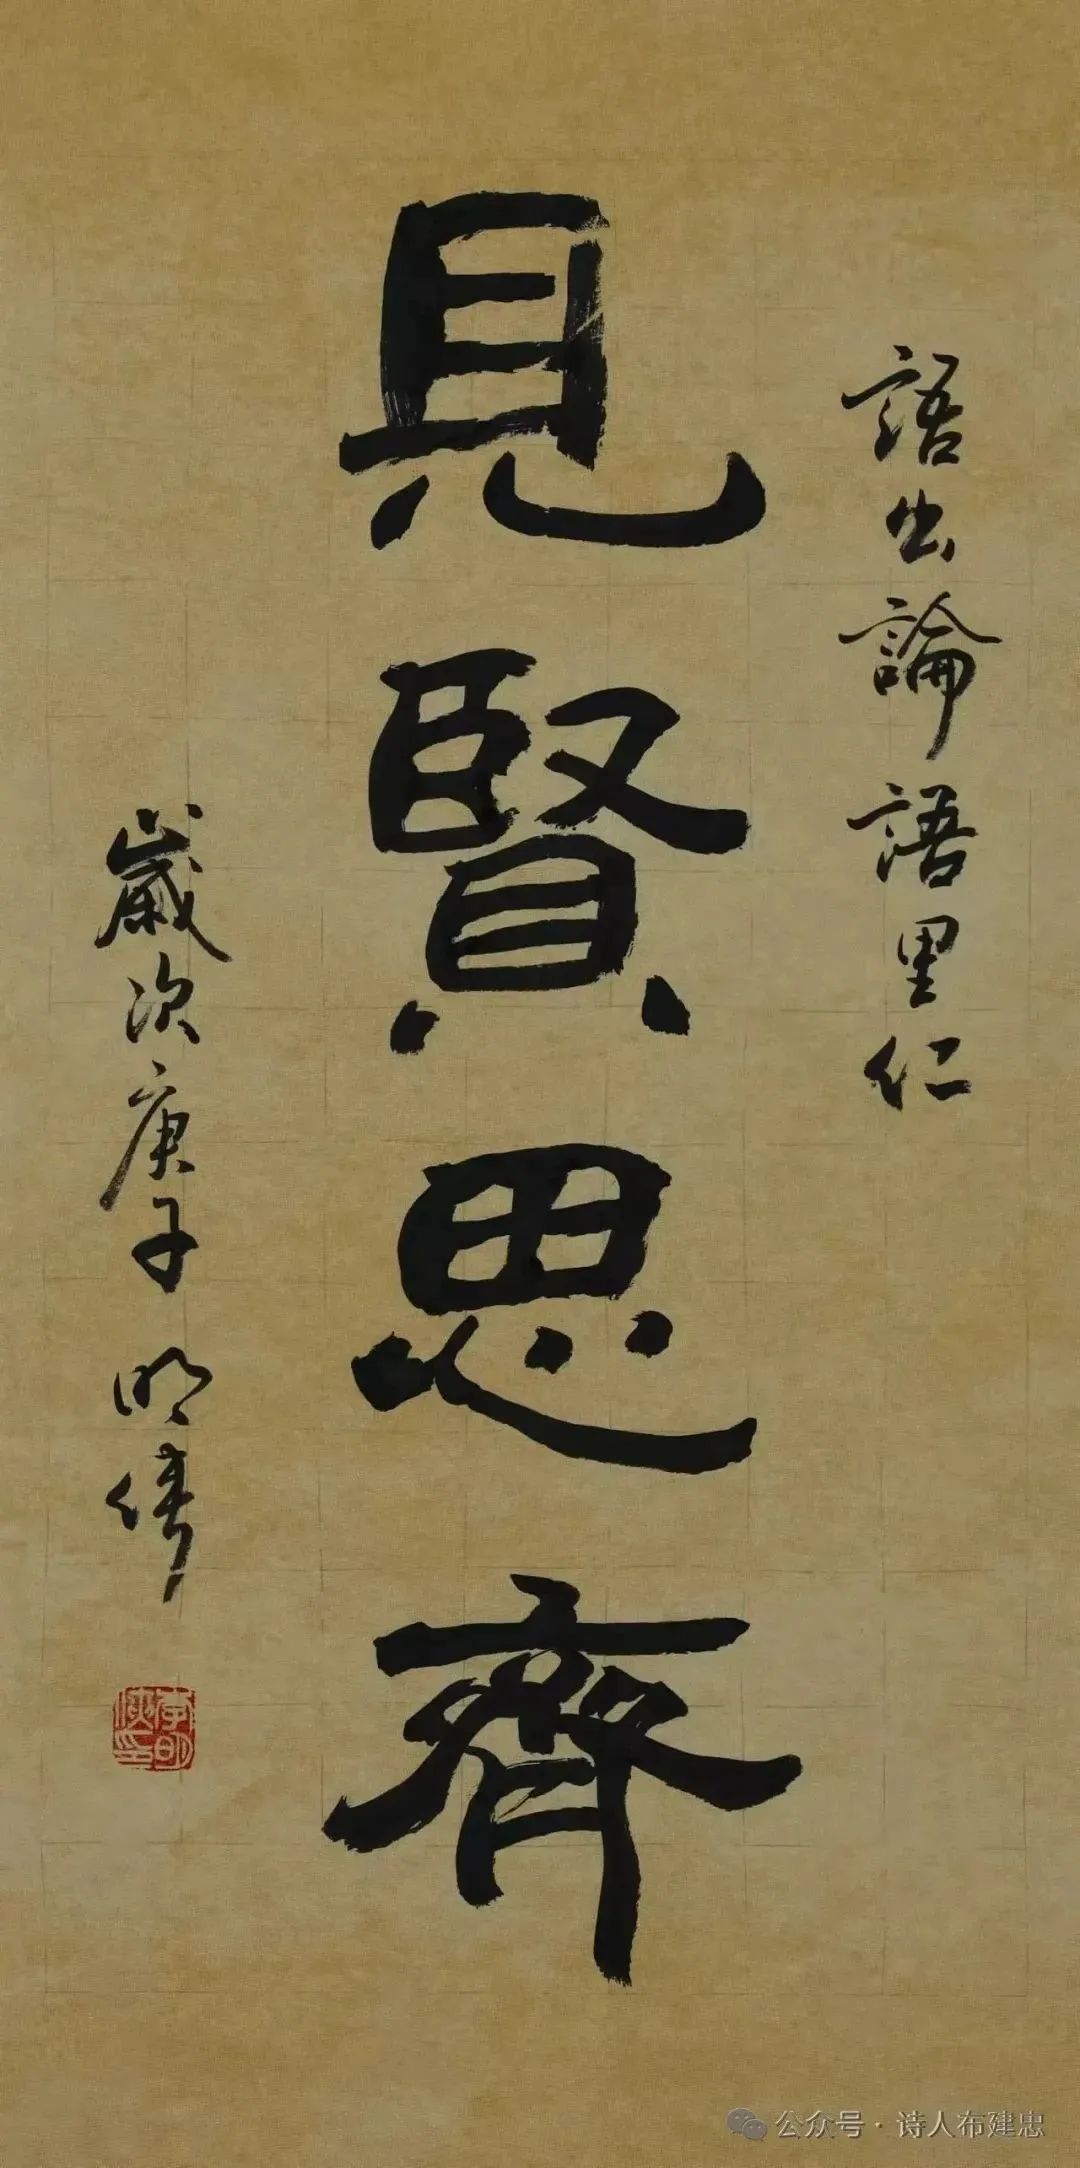 語出論語里仁
見賢思齊
歲次庚子 明
公众号·诗人布建忠